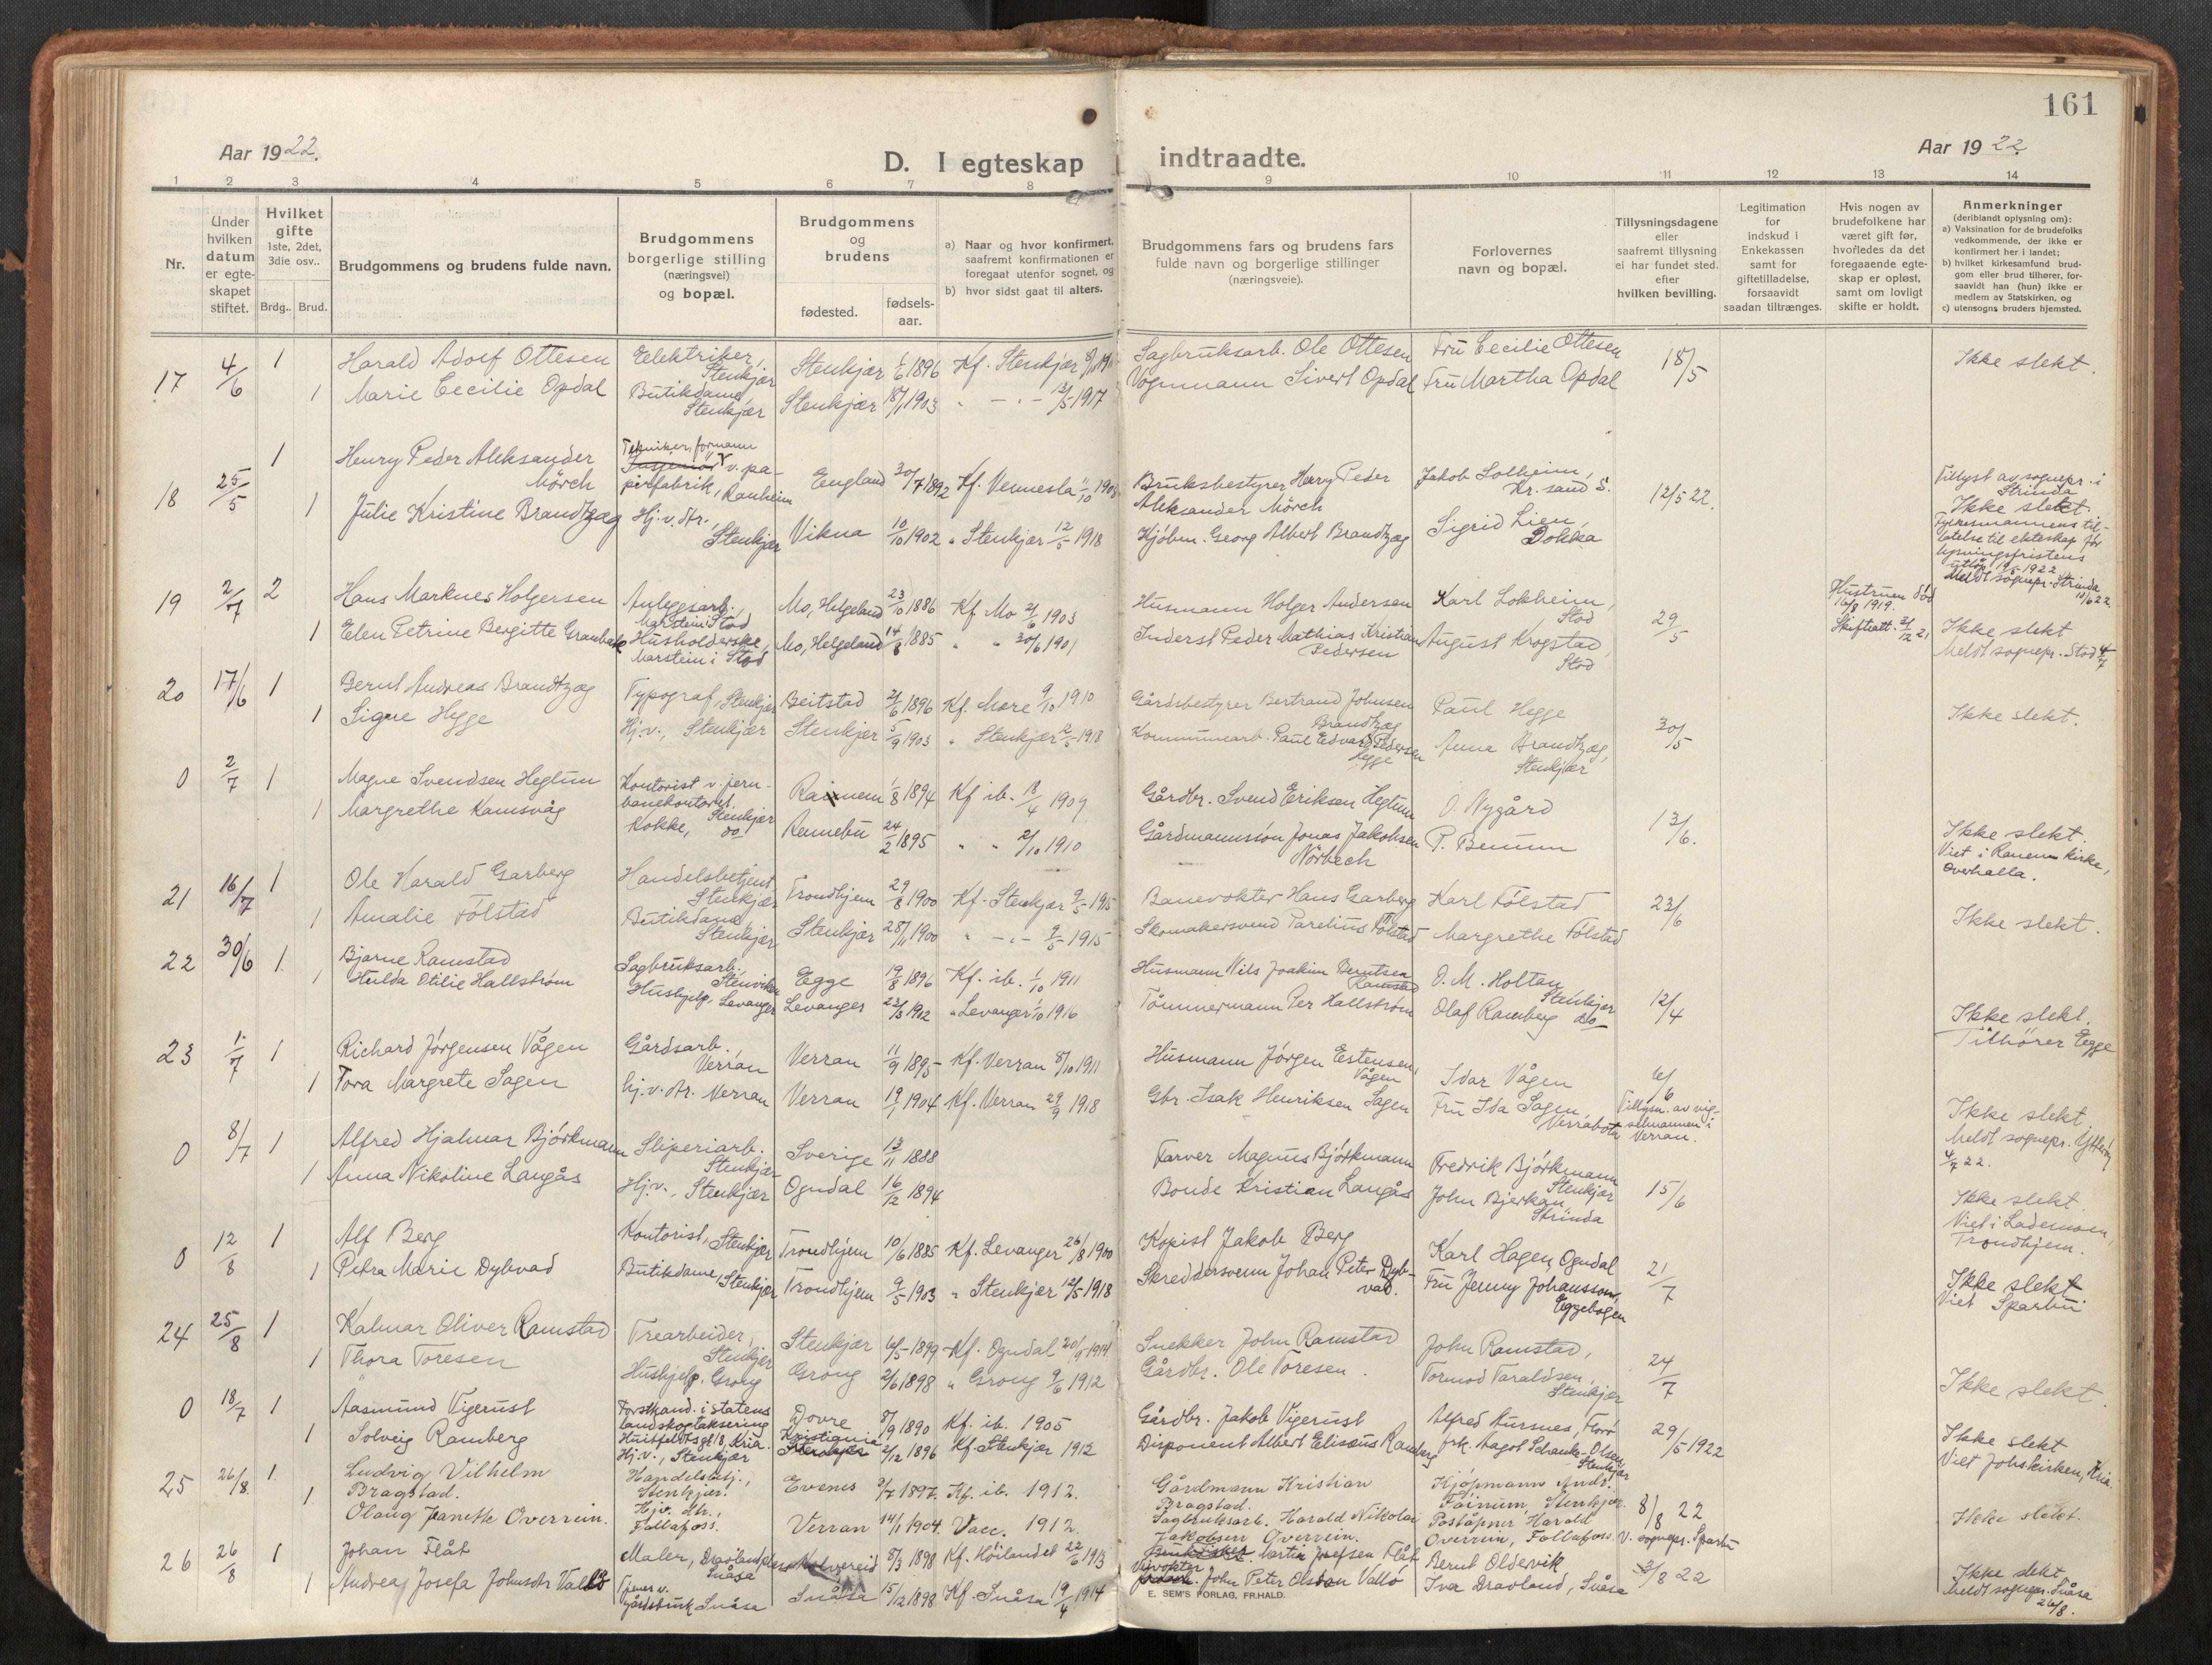 161
Aar 1922.
D. I egteskap indtraadte.
Aar 1922.
1 2 3 4 5 6 7 8 9 10 11 12 13 14
Nr.
Under
hvilken
datum
er egte-
skapet
stiftet.
Hvilket
gifte
1ste, 2det,
3die osv..
Brdg.. Brud.
Brudgommens og brudens fulde navn.
Brudgommens
borgerlige stilling
(næringsvei)
og bopæl.
Brudgommens
og
brudens
fødested.
fødsels-
aar.
a) Naar og hvor konfirmert,
saafremt konfirmationen er
foregaat utenfor sognet, og
b) hvor sidst gaat til alters.
Brudgommens fars og brudens fars
fulde navn og borgerlige stillinger
(næringsveie).
Forlovernes
navn og bopæl.
Tillysningsdagene
eller
saafremt tillysning
ei har fundet sted.
efter
hvilken bevilling.
Legitimation
for
indskud i
Enkekassen
samt for
giftetilladelse,
forsaavidt
saadan tiltrænges.
Hvis nogen av
brudefolkene har
været gift før,
hvofledes da det
foregaaende egte-
skap er opløst,
samt om lovligt
skifte er holdt.
Anmerkninger
(deriblandt oplysning om):
a) Vaksination for de brudefolks
vedkommende, der ikke er
konfirmert her i landet;
b) hvilket kirkesamfund brud-
gom eller brud tilhører, for-
saavidt han (hun) ikke er
medlem av Statskirken, og
c) utensogns bruders hjemsted.
17 4/6 1 Harald Adolf Ottesen Eelektriker, Stenkjær Stenkjær 1896 Kf. Stenkjær Sagbruksarb. Ole Ottesen Fru Cecilie Ottesen 18/5 Ikke slekt.
1 Marie Cecilie Opdal Butikdame, Stenkjær Stenkjær 18/1 1903 " - " - 13/5 1917 Vognmann Sivert Opdal Fru Martha Opdal
18 25/5 1 Henry Peder Aleksander Mörch Tekniker, formann v. pa-
pirfabrik, Ranheim England 30/7 1892 Kf. Vennesla 11/10 1908 Bruksbestyrer Henry Peder
Aleksander Mörch Jakob Solheim,
Kr. sand S. 12/5 22. Tillyst av sognepr. i
Strinda
Ikke slekt.
1 Julie Kristine Brandtzæg Hj. v. str., Stenkjær Vikna 10/10 1902 " Stenkjær 12/5 1918 Kjöbm. Georg Albert Brandtzæg Sigrid Lien,
Dokka Fylkesmannens til-
latelse til ekteskap før
lysningsfristens
utløp 19/5 1922
Meldt sognepr. Strinda
10/6 22.
19 2/7 2 Hans Marknes Holgersen Anleggsarb.,
Marstein, Stod Mo, Helgeland 23/10 1886 Kf Mo 21/6 1903 Husmann Holger Andersen Karl Lokheim,
Stod 29/5 Hustruen död
16/8 1919.
Skifteatt. 21/12 21
1 Elen Petrine Bergitte Granbakk Husholderske,
Marstein i Stod Mo, Helgeland 14/8 1885 " " 30/6 1901 Inderst Peder Mathias Kristian
Pedersen August Krogstad,
Stod Ikke slekt
Meldt sognepr. Stod 4/7
20 17/6 1 Bernt Andreas Brandtzæg Typograf, Stenkjær Beitstad 21/6 1896 Kf. Mære 9/10 1910 Gårdsbestyrer Bertrand Johnsen
Brandtzæg Paul Hegge 30/5 Ikke slekt.
1 Signe Hegge Hj. v., Stenkjær Stenkjær 5/9 1903 " Stenkjær 12/5 1918 Kommunearb. Paul Edvard Pedersen
Hegge Anna Brandtzæg,
Stenkjær
0 2/7 1 Magne Svendsen Hegtun Kontorist v. jern-
banekontoret, Stenkjær 1/8 1894 Kf ib. 18/4 1909 Gårdbr. Svend Eriksen Hegtun O. Nygård 13/6. Ikke slekt.
Viet i Ranem kirke,
Overhalla.
1 Margrethe Ramsvåg Kokke, do Rennebu 24/2 1895 " " 2/10 1910 Gårdmannssön Jonas Jakobsen
Nörbech P. Benum
21 16/7 1 Ole Harald Garberg Handelsbetjent,
Stenkjær Trondhjem 29/8 1900 Kf. Stenkjær 9/5 1915 Banevokter Hans Garberg Karl Fölstad 23/6 Ikke slekt.
1 Amalie Fölstad Butikdame,
Stenkjær Stenkjær 28/11 1900 " - " - 9/5 1915 Skomakersvend Parelius Fölstad Margrethe Fölstad
22 30/6 1. Bjarne Ramstad Sagbruksarb.
Stenviken Egge 19/8 1896 Kf. ib. 1/10 1911 Husmann Nils Joakim Berntsen
Ramstad O. M. Holtan
Stenkjær 12/4 Ikke slekt.
1 Hulda Otilie Hallstrøm Hushjelp. Levanger Levanger 23/3 1902 " Levanger 1/10 1916 Tömmermann Per Hallstrøm Olaf Ramberg do Tilhører Egge
23 1/7 1 Richard Jörgensen Vågen Gårdsarb.
Verran Verran 11/9 1895 Kf. Verran 8/10 1911 Husmann Jörgen Estensen
Vågen Idar Vågen 6/6
1 Tora Margrete Sagen hj. v. str. Verran Verran 19/1 1904 Kf. Verran 29/9 1918 Gbr. Isak Henriksen Sagen Fru Ida Sagen,
Verrabotn Tillysn. av vig-
selmannen i
Verran. Ikke slekt
Meldt sognepr. Ytteröy
4/7 22.
0 8/7 1 Alfred Hjalmar Björkmann Sliperiarb.
Stenkjær Sverige 13/11 1888 Farver Magnus Björkmann Fredrik Björkmann
Stenkjær 15/6 Ikke slekt.
1 Anna Nikoline Langås Hj. v., Stenkjær Ogndal 16/12 1894 Bonde Kristian Langås John Bjerkan
Strinda Viet i Lademoen,
Trondhjem.
0 12/8 1 Alf Berg Kontorist, Stenkjær Trondhjem 10/6 1885 Kf. Levanger 26/8 1900 Kopist Jakob Berg Karl Hagen, Ogndal 21/7 Ikke slekt
1 Petra Marie Dybvad Butikdame, Stenkjær Trondhjem 9/5 1903 " Stenkjær 12/5 1918 Skreddersvenn Johan Peter Dyb-
vad. Fru Jenny Johansson,
Eggebogen Viet Sparbu
24 25/8 1 Kalmar Oliver Ramstad Trearbeider,
Stenkjær Stenkjær 16/5 1899 Kf. Ogndal 20/9 1914 Snekker John Ramstad John Ramstad, 24/7 Ikke slekt.
1 Thora Toresen Hushjelp. Grong Grong 2/6 1898 " Grong 9/6 1912 Gårdbr. Ole Toresen. Tormod Taraldsen,
Stenkjær
0 18/7 1 Aasmund Vigerust Forstkand. i statens
landskogtaksering
Huitfeldtsgt 18, Kria. Dovre 8/9 1890 Kf. ib. 1905 Gårdbr. Jakob Vigerust Alfred Aursnes, Florö 29/5 1922 Ikke slekt
1 Solveig Ramberg Hj. v., Stenkjær Kristiania 2/12 1896 Kf. Stenkjær 1912 Disponent Albert Eliseus Ramberg frk. Aagot Schanke-Olsen
Stenkjær Viet Johskirken, Kria.
25 26/8 1. Ludvig Vilhelm
Bragstad. Handelsbetj.,
Stenkjær. Evenes 2/7 1897. Kf. ib. 1912. Gårdmann Kristian
Bragstad. Kjöpmann Andr.
Föinum, Stenkjær. 8/8 22 Ikke slekt.
1 Olaug Jeanette Overrein. Hjv. str.,
Follafoss. Verran 14/1 1904. Vacc. 1912. Sagbruksarb. Harald Nikolai
Jakobsen Overrein. Poståpner Harald
Overrein, Follafoss. V. sognepr. Sparbu
26 26/8 1 Johan Flåt Maler, Snåsa Kolvereid 8/3 1898 Kf. Höilandet 22/6 1913 Martin Josefsen Flåt Bernt Oldervik 3/8 22 Ikke slekt
1 Andrea Josefa Johnsdtr Vallö Tjener v.
gårdsbruk Snåsa Snåsa 15/12 1898 Kf. Snåsa 19/4 1914 John Peter Olsson Vallö Iver Dravland, Snåsa Meldt sognepr. Snåsa
26/8.
E. SEM'S FORLAG, FR.HALD.